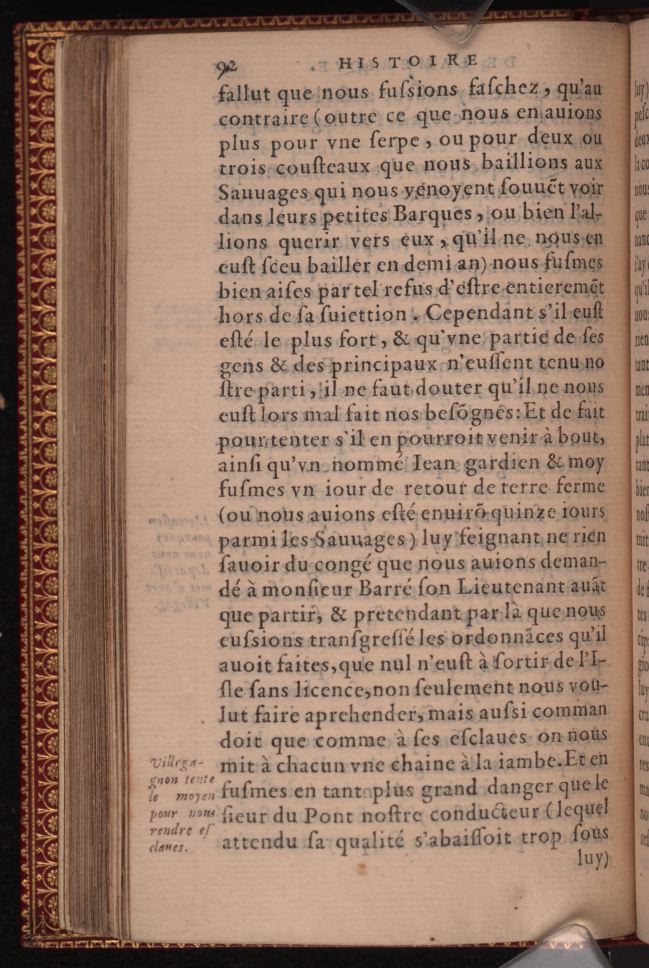 92 HISTOIRE
fallut que nous fuſsions faſchez, qu'au
contraire (outre ce que nous en auions
plus pour vne ſerpe, ou pour deux ou
trois couſteaux que nous baillions aux
Sauuages qui nous venoyent ſouuẽt voir
dans leurs petites Barques, ou bien l'al-
lions querir vers eux, qu'il ne nous en
euſt ſceu bailler en demi an) nous fuſmes
bien aiſes par tel refus d'eſtre entieremẽt
hors de ſa ſuiettion. Cependant s'il euſt
eſté le plus fort, & qu'vne partie de ſes
gens & des principaux n'euſſent tenu no
ſtre parti, il ne faut douter qu'il ne nous
euſt lors mal fait nos beſõgnes: Et de fait
pour tenter s'il en pourroit venir à bout,
ainſi qu'vn nommé Iean gardien & moy
fuſmes vn iour de retour de terre ferme
(ou nous auions eſté enuirõ quinze iours
parmi les Sauuages) luy feignant ne rien
ſauoir du congé que nous auions deman-
dé à monſieur Barré ſon Lieutenant auãt
que partir, & pretendant par là que nous
euſsions tranſgreſſé les ordonnãces qu'il
auoit faites, que nul n'euſt à ſortir de l'I-
ſle ſans licence, non ſeulement nous vou-
lut faire aprehender, mais auſsi comman
doit que comme à ſes eſclaues on nous
mit à chacun vne chaine à la iambe. Et en
fuſmes en tant plus grand danger que le
ſieur du Pont noſtre conducteur (lequel
attendu ſa qualité s'abaiſſoit trop ſous
luy)
Villega-
gnon tente
le moyen
pour nous
rendre eſ
claues.